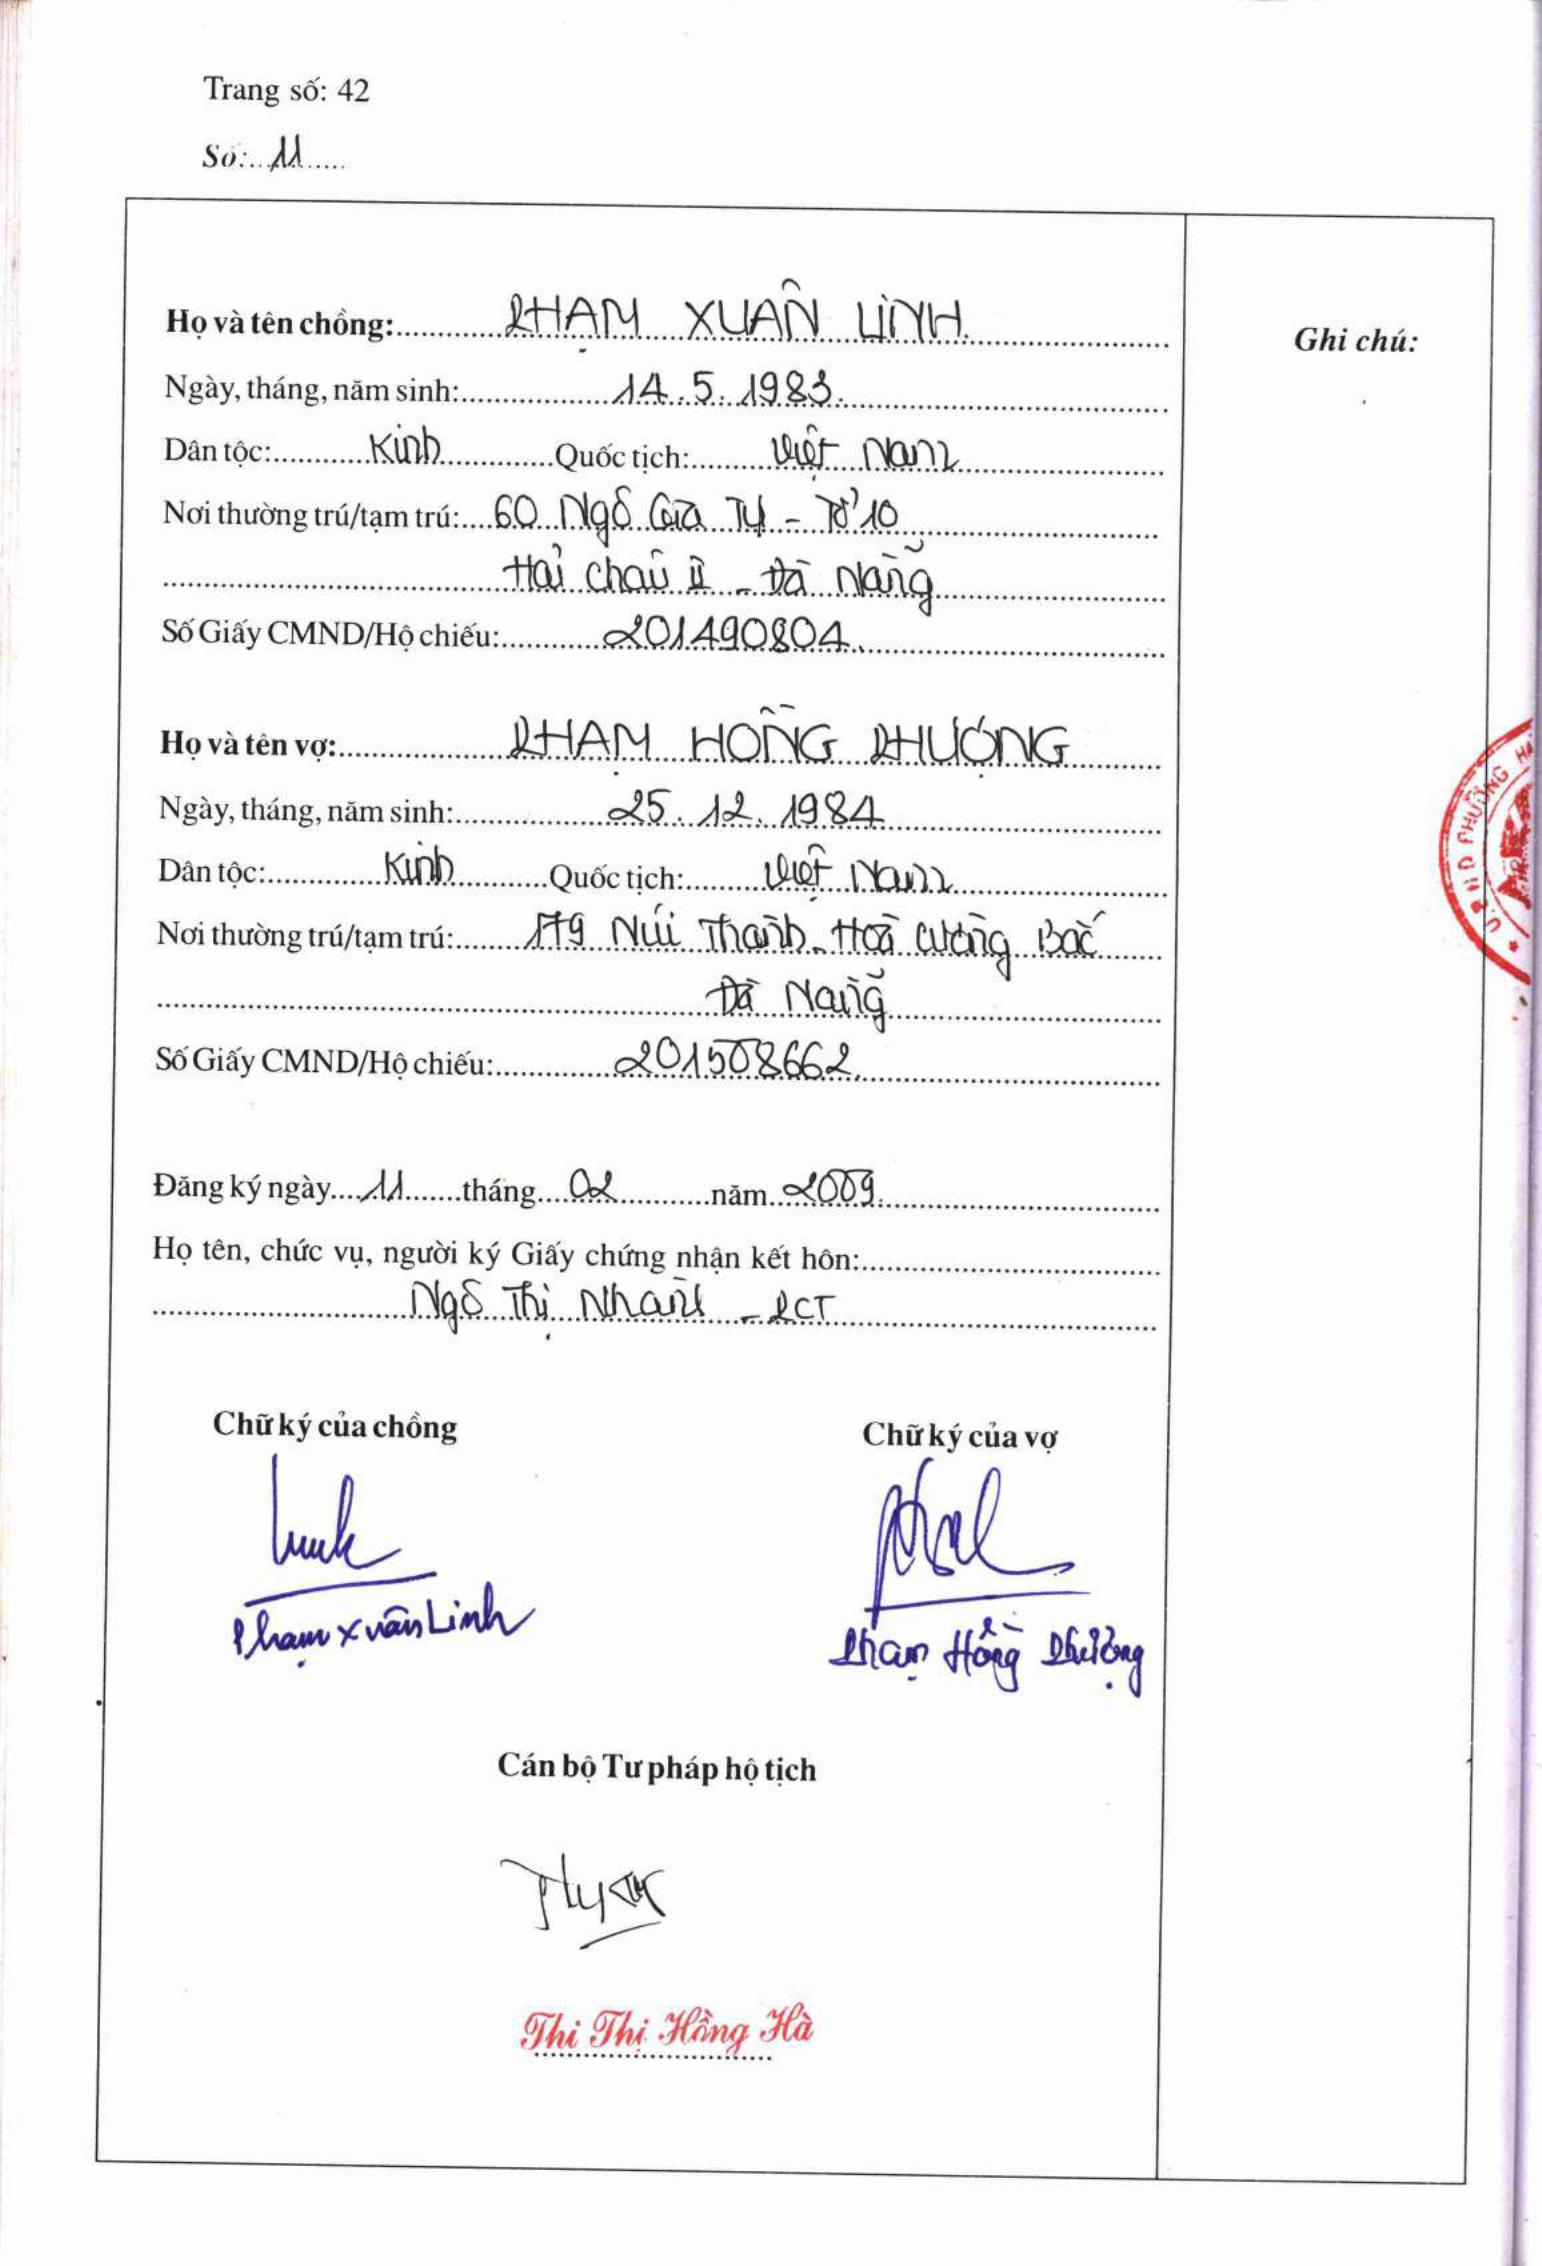 Trang số: 42
Số: 11
Họ và tên chồng: PHẠM XUÂN LINH
Ghi chú:
Ngày, tháng, năm sinh: 14.5.1983
Dân tộc: Kinh Quốc tịch: Việt Nam
Nơi thường trú/tạm trú: 60 Ngô Gia Tự - Tổ 10
Hải Châu II - Đà Nẵng
Số Giấy CMND/Hộ chiếu: 201490804
Họ và tên vợ: PHẠM HỒNG PHƯỢNG
Ngày, tháng, năm sinh: 25.12.1984
Dân tộc: Kinh Quốc tịch: Việt Nam
Nơi thường trú/tạm trú: 179 Núi Thành - Hoà Cường Bắc
Đà Nẵng
Số Giấy CMND/Hộ chiếu: 201508662
Đăng ký ngày 11 tháng 02 năm 2009
Họ tên, chức vụ, người ký Giấy chứng nhận kết hôn:
Ngô Thị Nhàn - PCT
Chữ ký của chồng Chữ ký của vợ
Linh
Phạm Xuân Linh
Phạm Hồng Phượng
Cán bộ Tư pháp hộ tịch
Thi Thị Hồng Hà
U.B.N.D PHƯỜNG